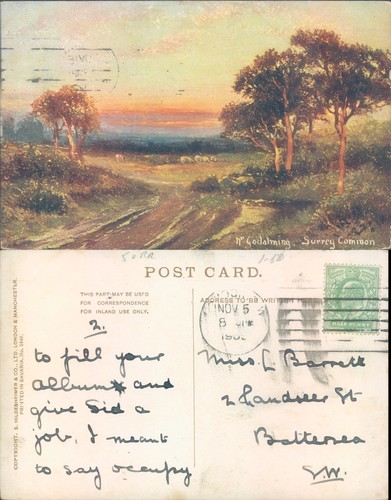 Nr Godalming, Surrey Common
POST CARD.
THIS PART MAY BE USED
FOR CORRESPONDENCE
FOR INLAND USE ONLY.
ADDRESS TO BE WRITTEN
NOV 5
8
190
HALF PENNY
COPYRIGHT. S. HILDESHEIMER & CO., LTD. LONDON & MANCHESTER.
PRINTED IN BAVARIA.
2.
to fill your
album and
give Sid a
job. I meant
to say occupy
Miss. L Barrett
2 Landseer St
Battersea
S.W.